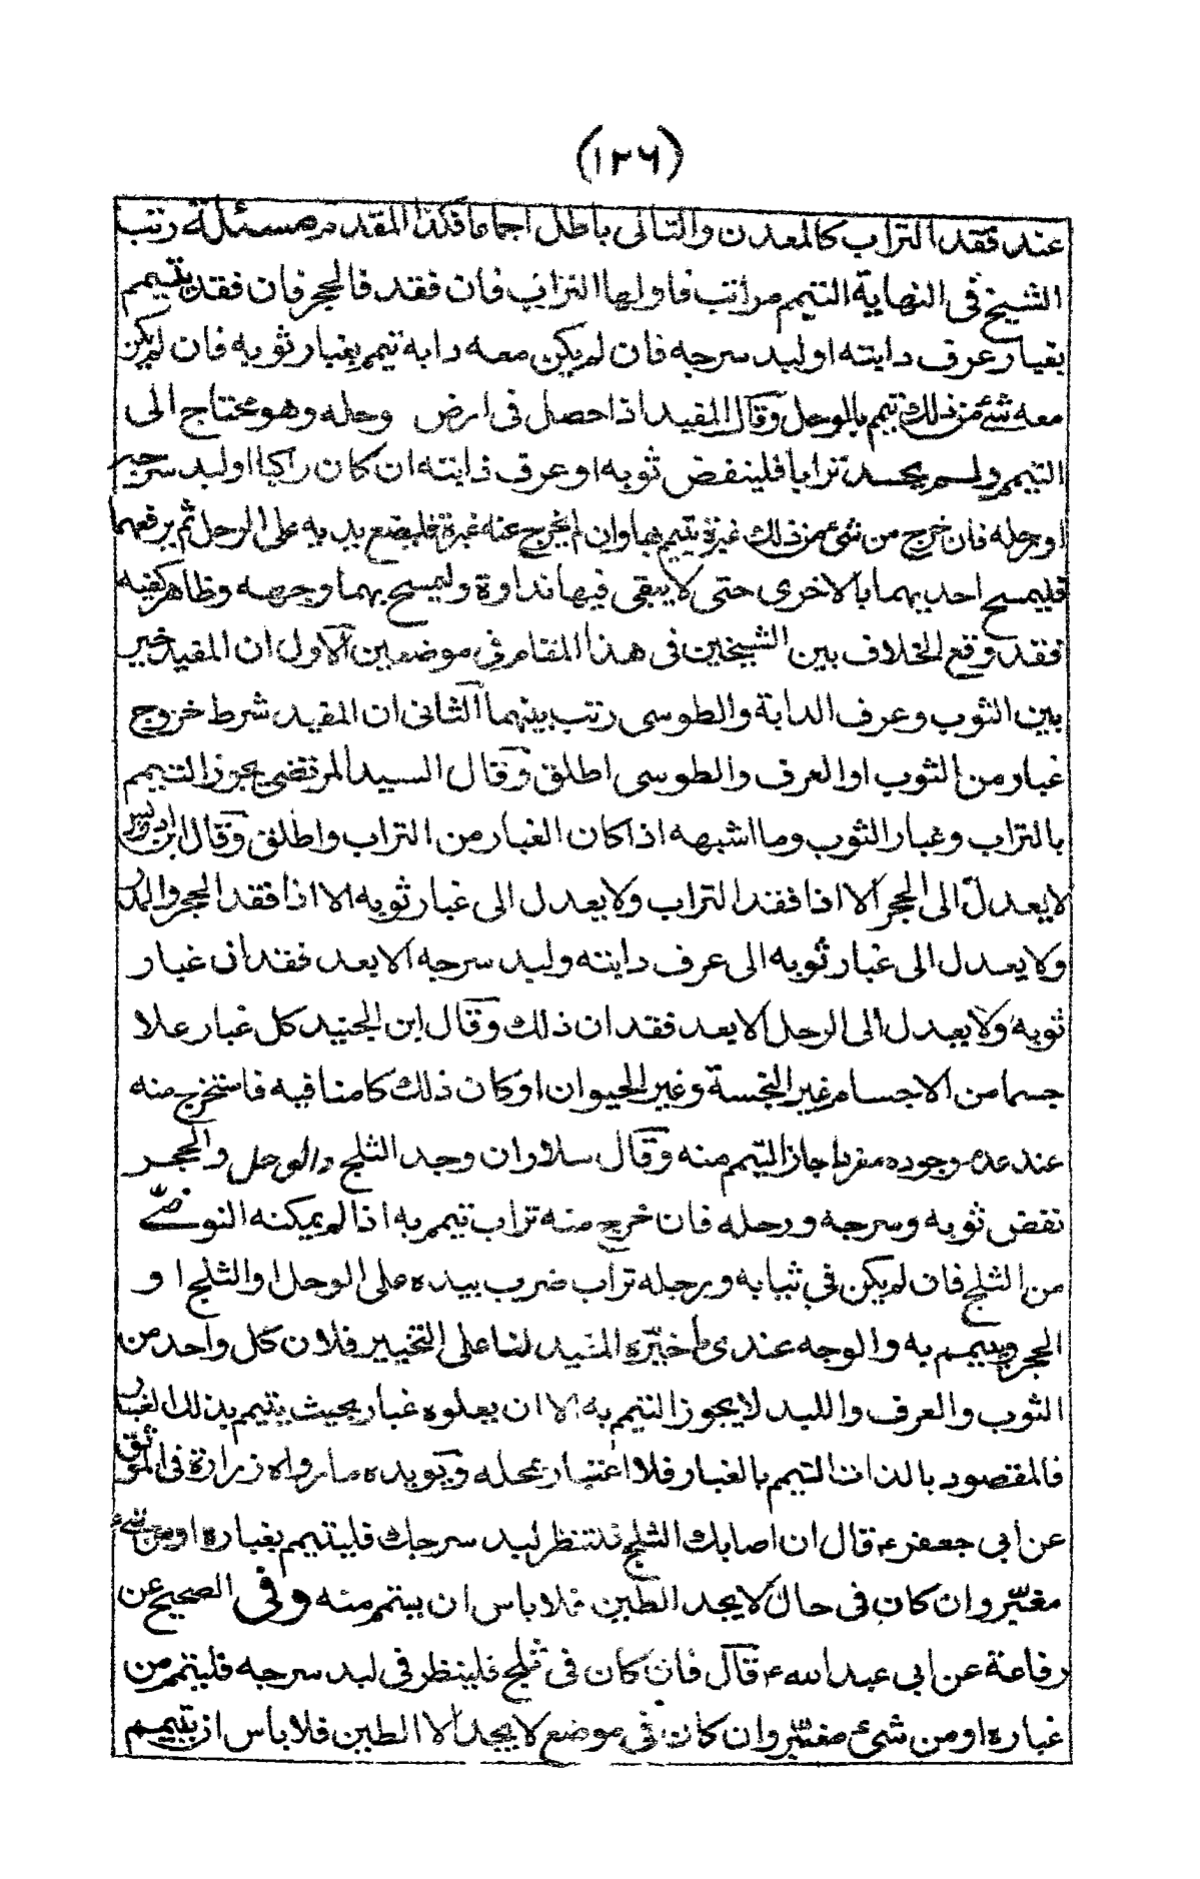 (١٢٦)
عند فقد التراب كالمعدن والتالى باطل اجماعا فكذا المقدم مسئلة رتب
الشيخ فى النهاية التيمم مراتب فاولها التراب فان فقد فالحجر فان فقد يتيمم
بغبار عرف دابته او لبد سرجه فان لم يكن معه دابة تيمم بغبار ثوبه فان لم يكن
معه شئ من ذلك تيمم بالوحل وقال المفيد اذا حصل فى ارض وحله وهو محتاج الى
التيمم ولم يجد ترابا فلينفض ثوبه او عرف دابته ان كان راكبا او لبد سرجه
او رحله فان خرج من شئ من ذلك غبرة يتيمم بها وان لم يخرج عنه غبرة فليضع يديه على الوحل ثم يرفعهما
فليمسح احديهما بالاخرى حتى لا يبقى فيها نداوة وليمسح بهما وجهه وظاهر كفيه
فقد وقع الخلاف بين الشيخين فى هذا المقام فى موضعين الاول ان المفيد خير
بين الثوب وعرف الدابة والطوسى رتب بينهما الثانى ان المفيد شرط خروج
غبار من الثوب او العرف والطوسى اطلق وقال السيد المرتضى يجوز التيمم
بالتراب وغبار الثوب وما اشبهه اذا كان الغبار من التراب واطلق وقال ابن ادريس
لا يعدل الى الحجر الا اذا فقد التراب ولا يعدل الى غبار ثوبه الا اذا فقد الحجر والمدر
ولا يعدل الى غبار ثوبه الى عرف دابته ولبد سرجه الا بعد فقدان غبار
ثوبه ولا يعدل الى الوحل الا بعد فقدان ذلك وقال ابن الجنيد كل غبار علا
جسما من الاجسام غير النجسة وغير الحيوان او كان ذلك كامنا فيه فاستخرج منه
عند عدم وجوده مفردا جاز التيمم منه وقال سلار وان وجد الثلج والوحل والحجر
نفض ثوبه وسرجه ورحله فان خرج منه تراب تيمم به اذا لم يمكنه التوضئ
من الثلج فان لم يكن فى ثيابه ورحله تراب ضرب بيده على الوحل او الثلج او
الحجر ويتيمم به والوجه عندى ما خيّره المفيد لنا على التخيير فلان كل واحد من
الثوب والعرف واللبد لا يجوز التيمم به الا ان يعلوه غبار بحيث يتيمم بذلك الغبار
فالمقصود بالذات التيمم بالغبار فلا اعتبار بمحله ويؤيده ما رواه زرارة فى الموثق
عن ابى جعفر ع قال ان اصابك الثلج فلتنظر لبد سرجك فليتيمم بغباره او من شئ
مغبّر وان كان فى حال لا يجد الا الطين فلا باس ان يتيمم منه وفى الصحيح عن
رفاعة عن ابى عبد الله ع قال فان كان فى ثلج فلينظر فى لبد سرجه فليتيمم من
غباره او من شئ مغبّر وان كان فى موضع لا يجد الا الطين فلا باس ان يتيمم